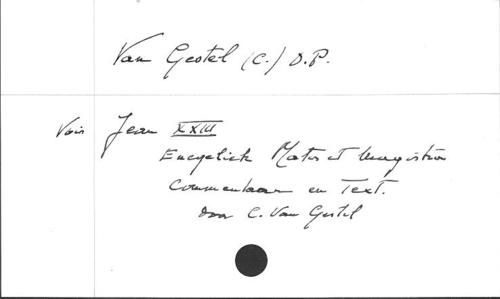 Van Gestel (C.) O.P.
Voir Jean XXIII
Encycliek Mater et Magistra
Commentaar en Text.
door C. Van Gestel